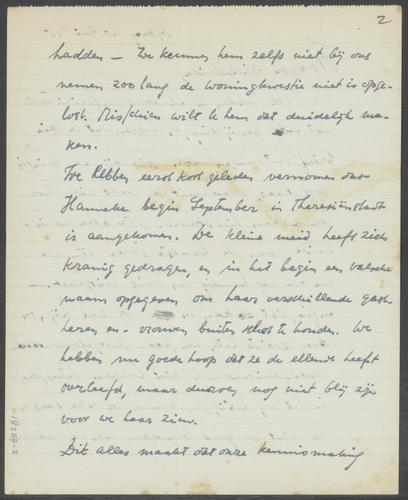 2
hadden – We kunnen hem zelfs niet bij ons
nemen zoo lang de woningkwestie niet is opge-
lost. Misschien wilt U hem dat duidelijk ma-
ken.
We hebben eerst kort geleden vernomen dat
Hanneke begin September in Theresienstadt
is aangekomen. De kleine meid heeft zich
kranig gedragen, en in het begin een valsche
naam opgegeven om haar verschillende gast-
heeren en - vrouwen buiten schot te houden. We
hebben nu goede hoop dat ze de ellende heeft
overleefd, maar durven nog niet blij zijn
voor we haar zien.
Dit alles maakt dat onze kennismaking